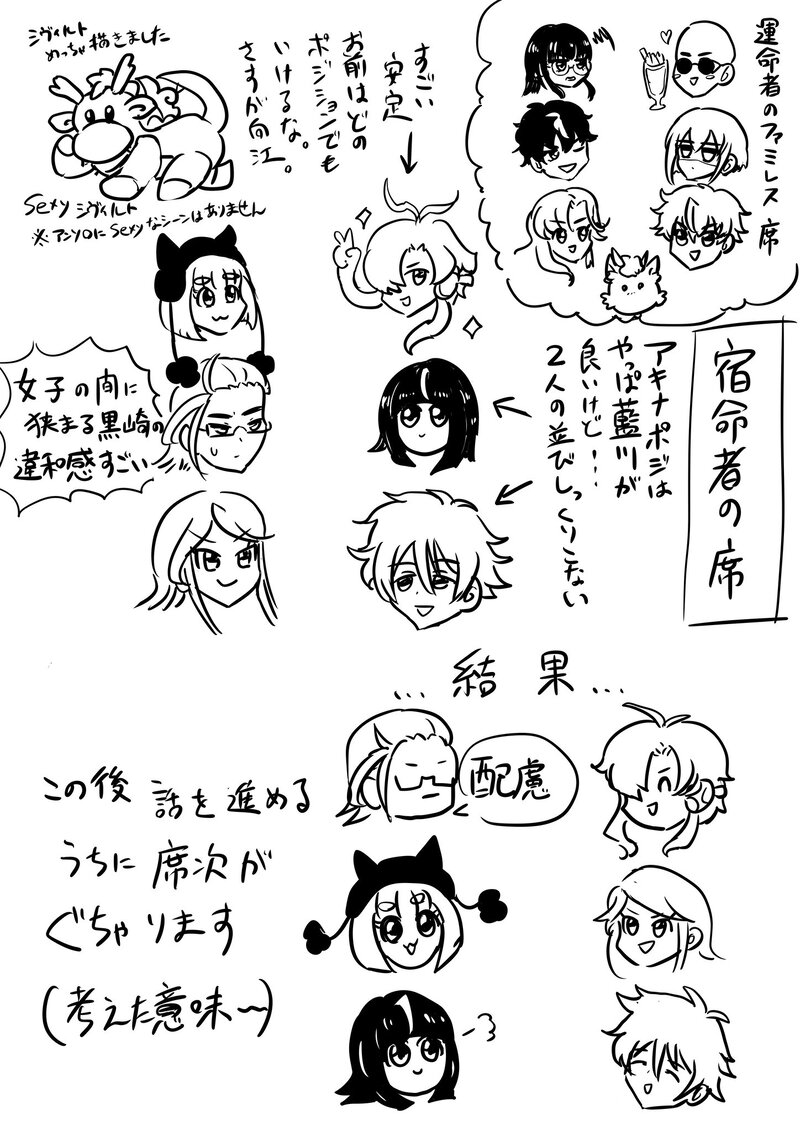 運命者のファミレス席
ジヴィルト
めっちゃ描きました
すごい
安定
お前はどの
ポジションでも
いけるな。
さすが向江。
Sexy ジヴィルト
※アンソロにSexyなシーンはありません
宿命者の席
アキナポジは
やっぱ藍川が
良いけど…
2人の並びしっくりこない
女子の間に
狭まる黒崎の
違和感すごい
…結果…
配慮
この後 話を進める
うちに席次が
ぐちゃります
(考えた意味〜)